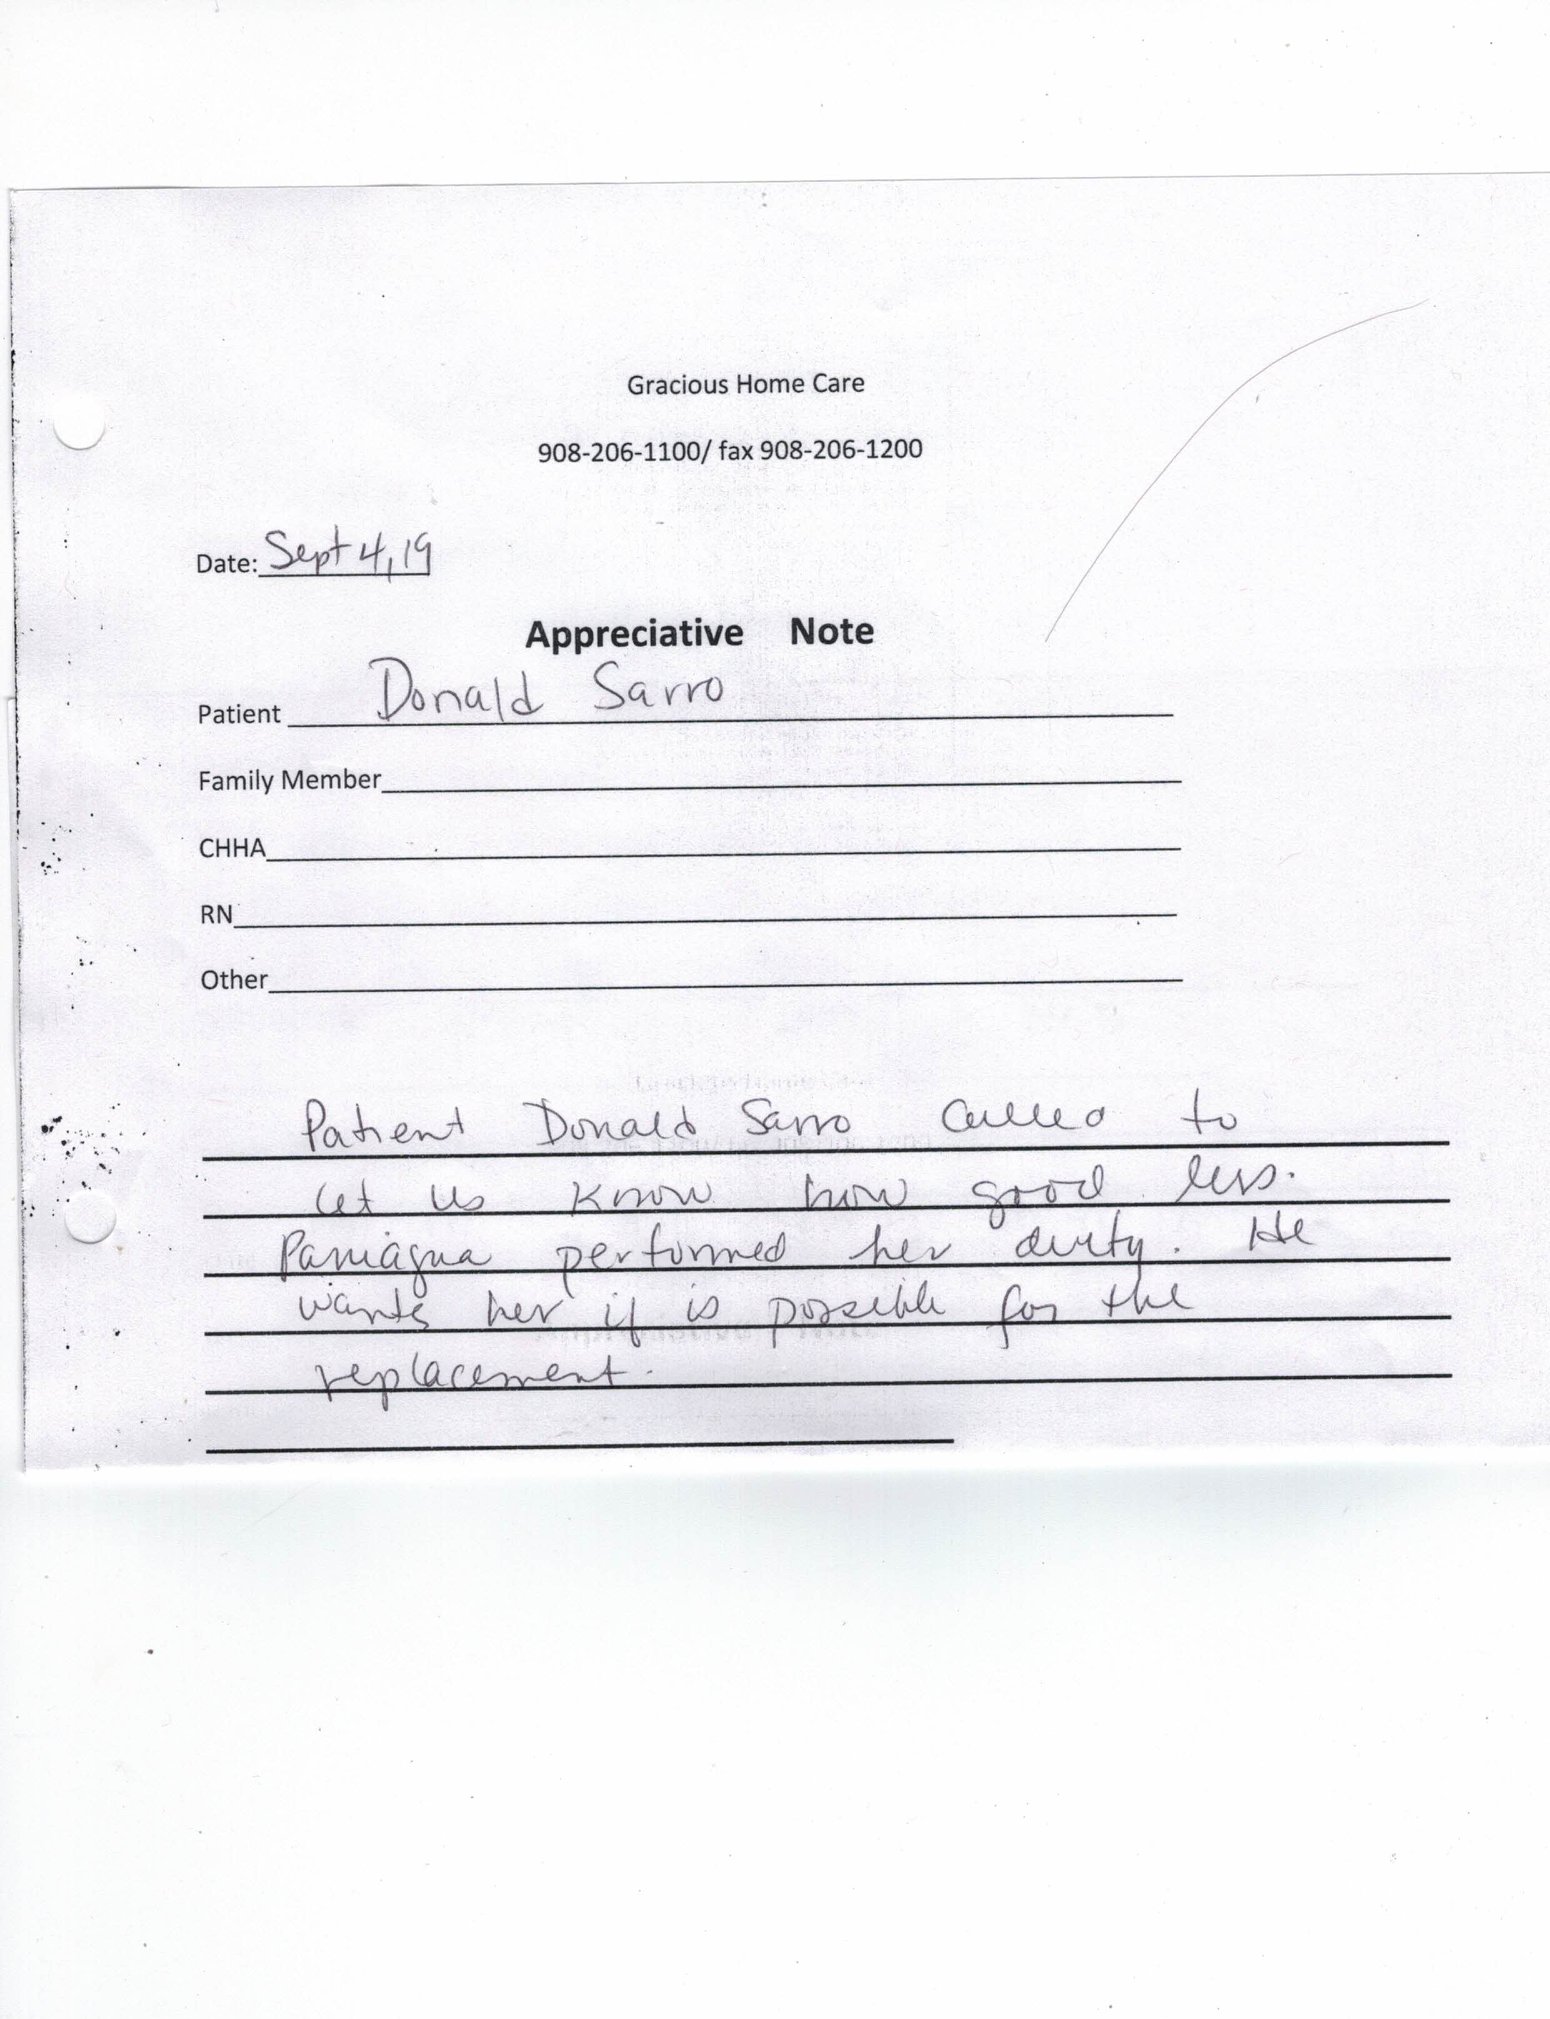 Gracious Home Care
908-206-1100/ fax 908-206-1200
Date: Sept 4, 19
Appreciative Note
Patient Donald Sarro
Family Member
CHHA
RN
Other
Patient Donald Sarro called to
let us know how good
Paniagua performed her duty. He
wants her if is possible for the
replacement.